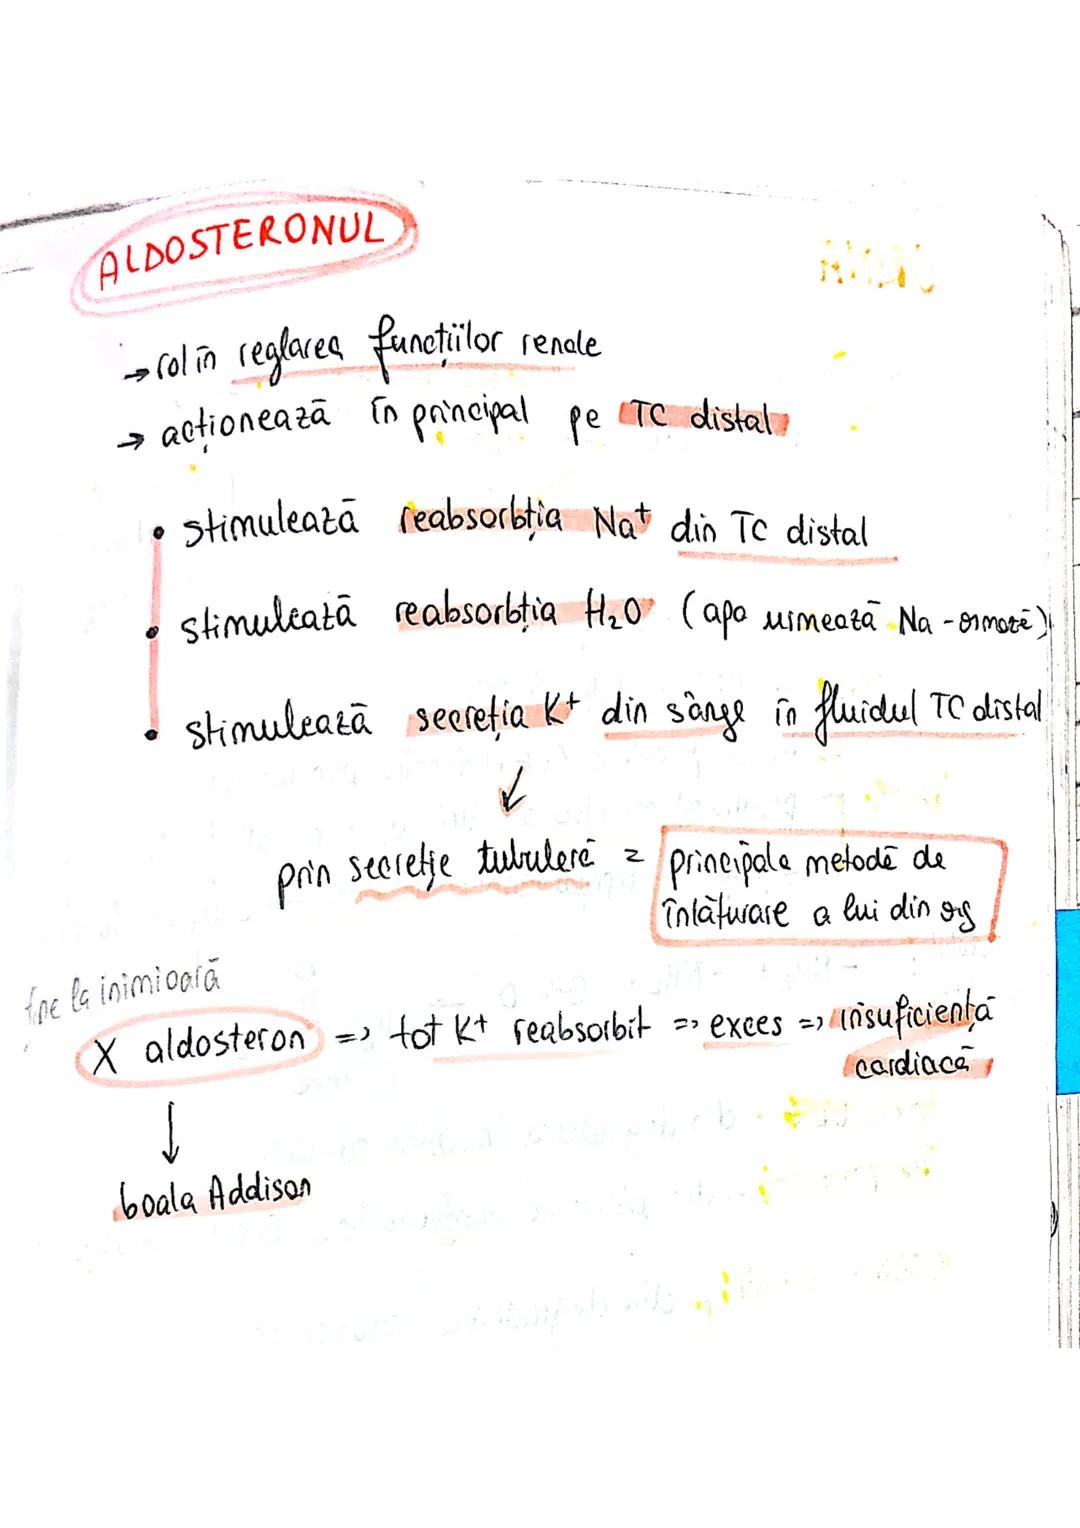 ALDOSTERONUL
→ rol în reglarea funcțiilor renale
→ acționează în principal pe TC distal
• stimulează reabsorbția Na+ din TC distal
• stimulează reabsorbția H₂O (apa urmează Na - osmoză)
• stimulează secreția K+ din sânge în fluidul TC distal
↓
prin secreție tubulară = principala metodă de
înlăturare a lui din org
la inimioară
X aldosteron => tot K+ reabsorbit => exces => insuficiență
cardiacă
↓
boala Addison